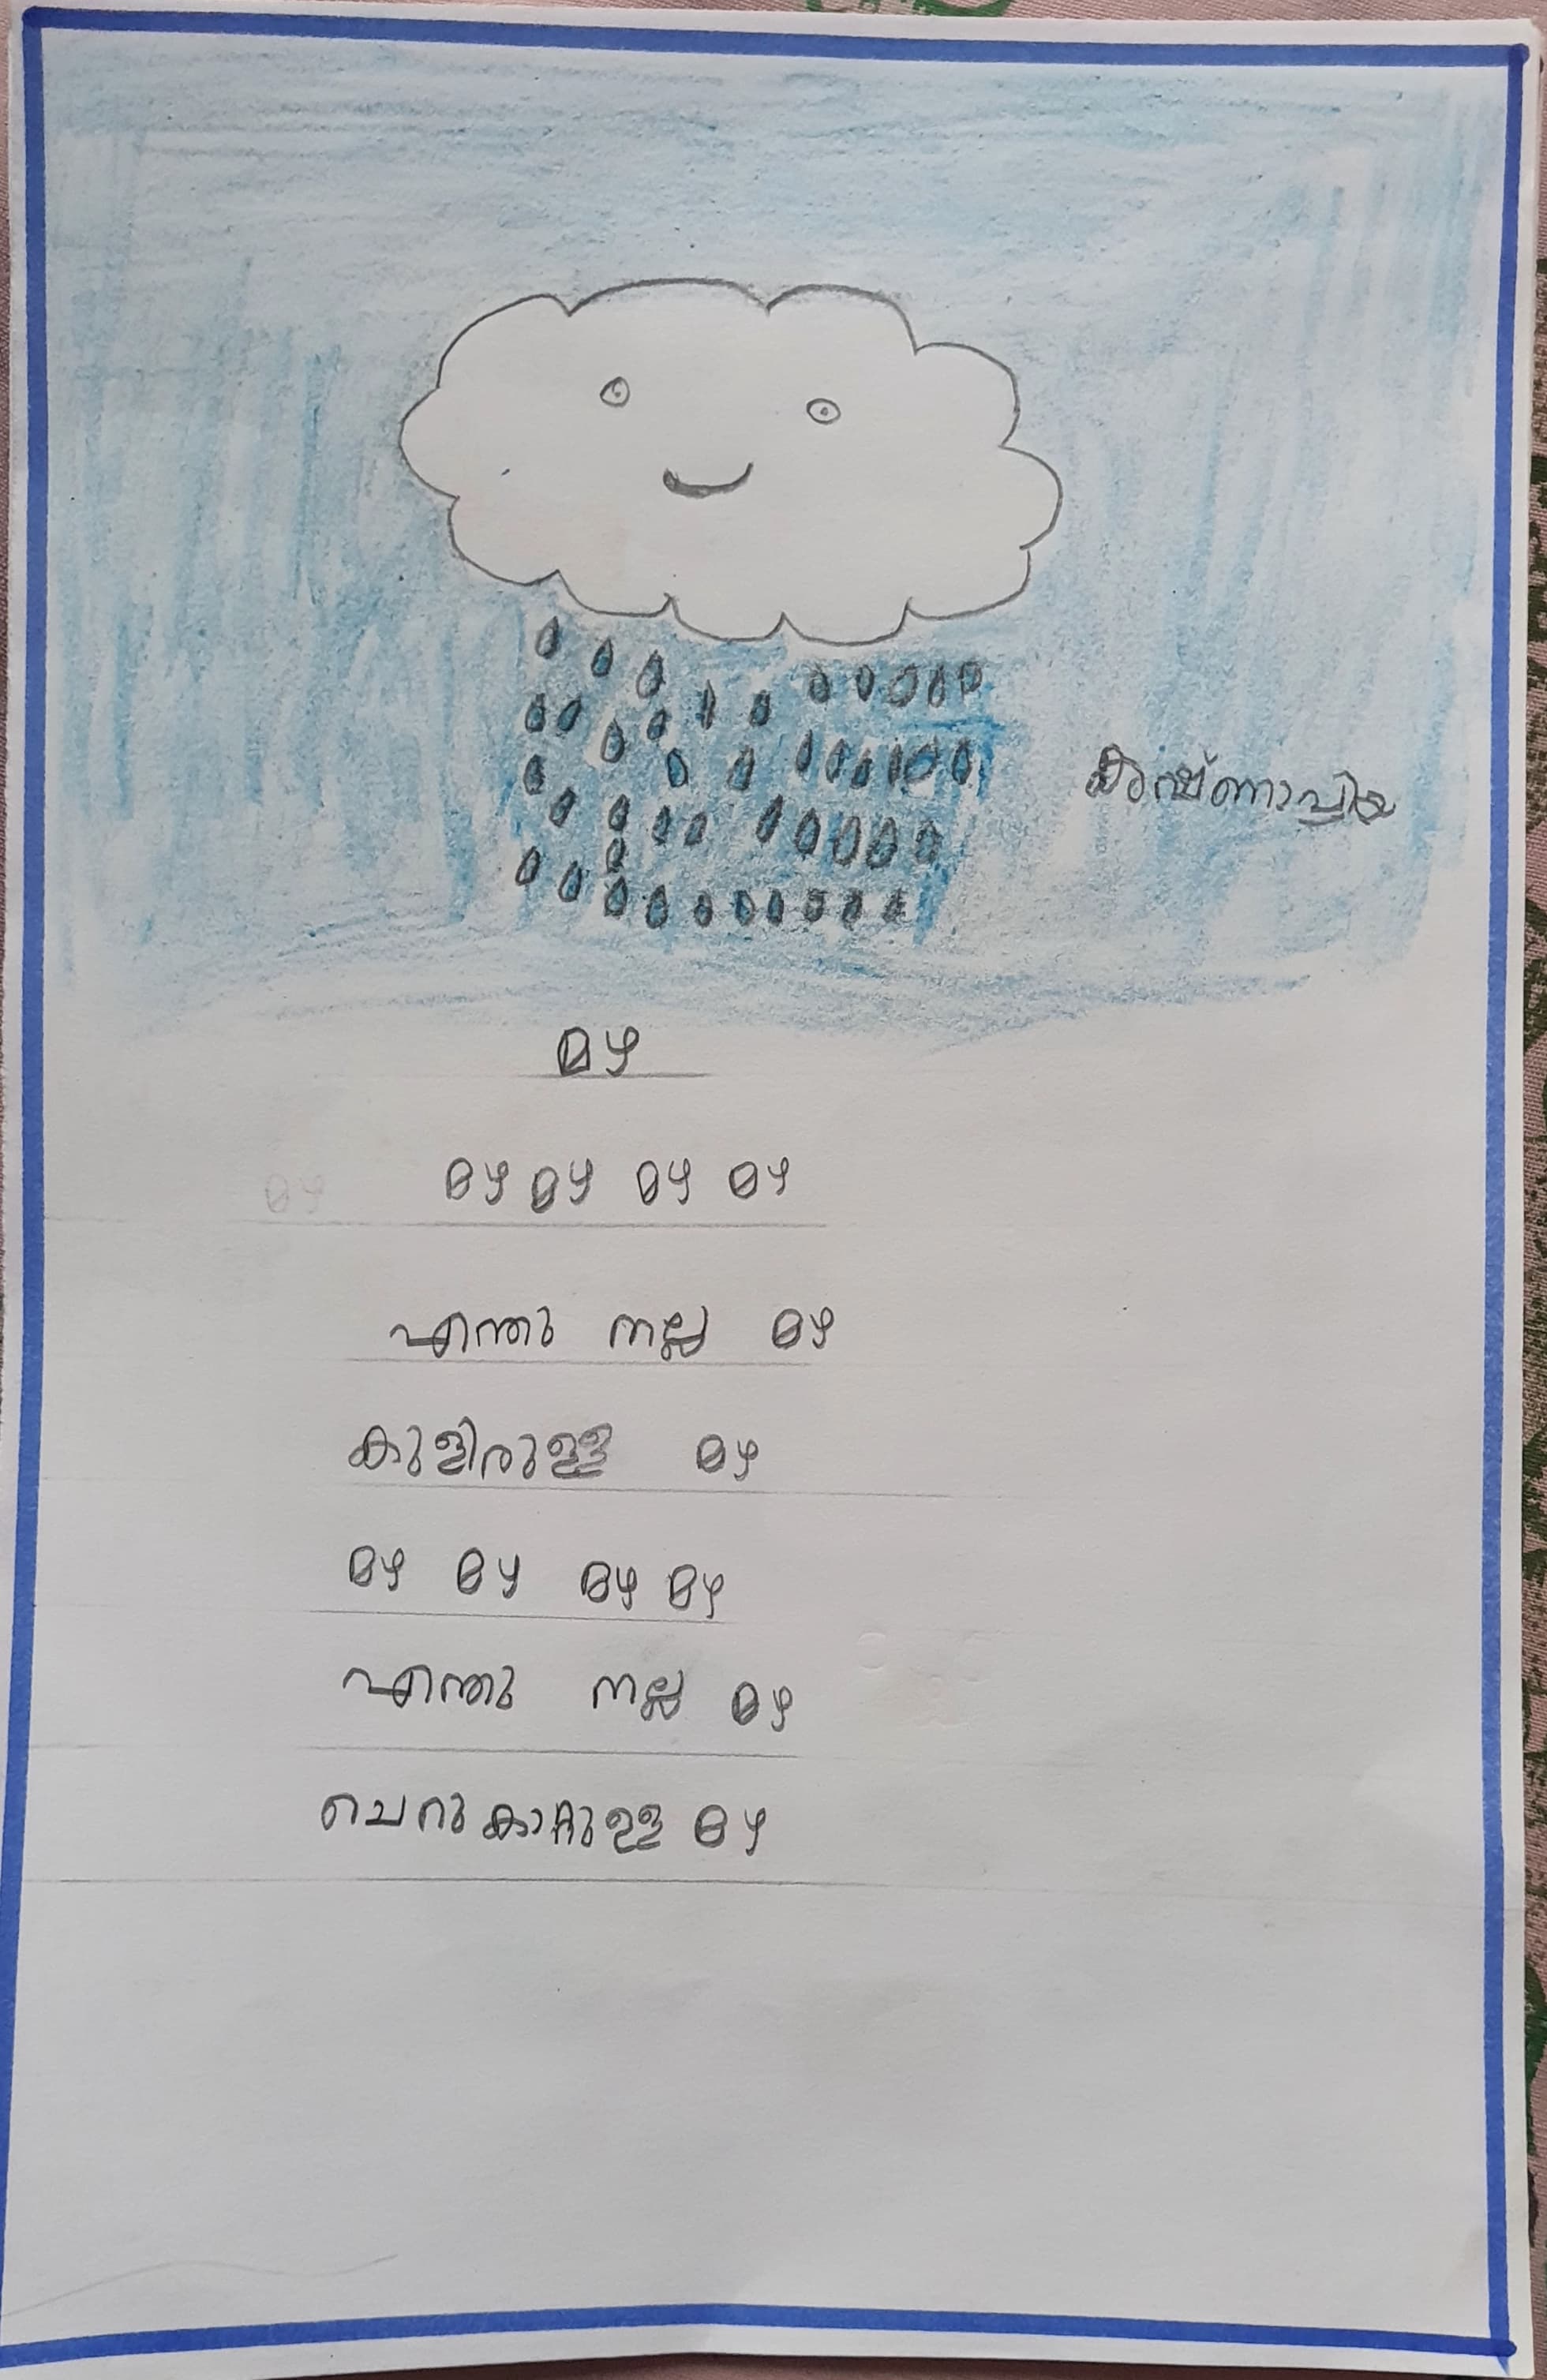 കൃഷ്ണാപ്രിയ
മഴ
മഴ മഴ മഴ മഴ മഴ
എന്തു നല്ല മഴ
കുളിരുള്ള മഴ
മഴ മഴ മഴ മഴ
എന്തു നല്ല മഴ
ചെറുകാറ്റുള്ള മഴ